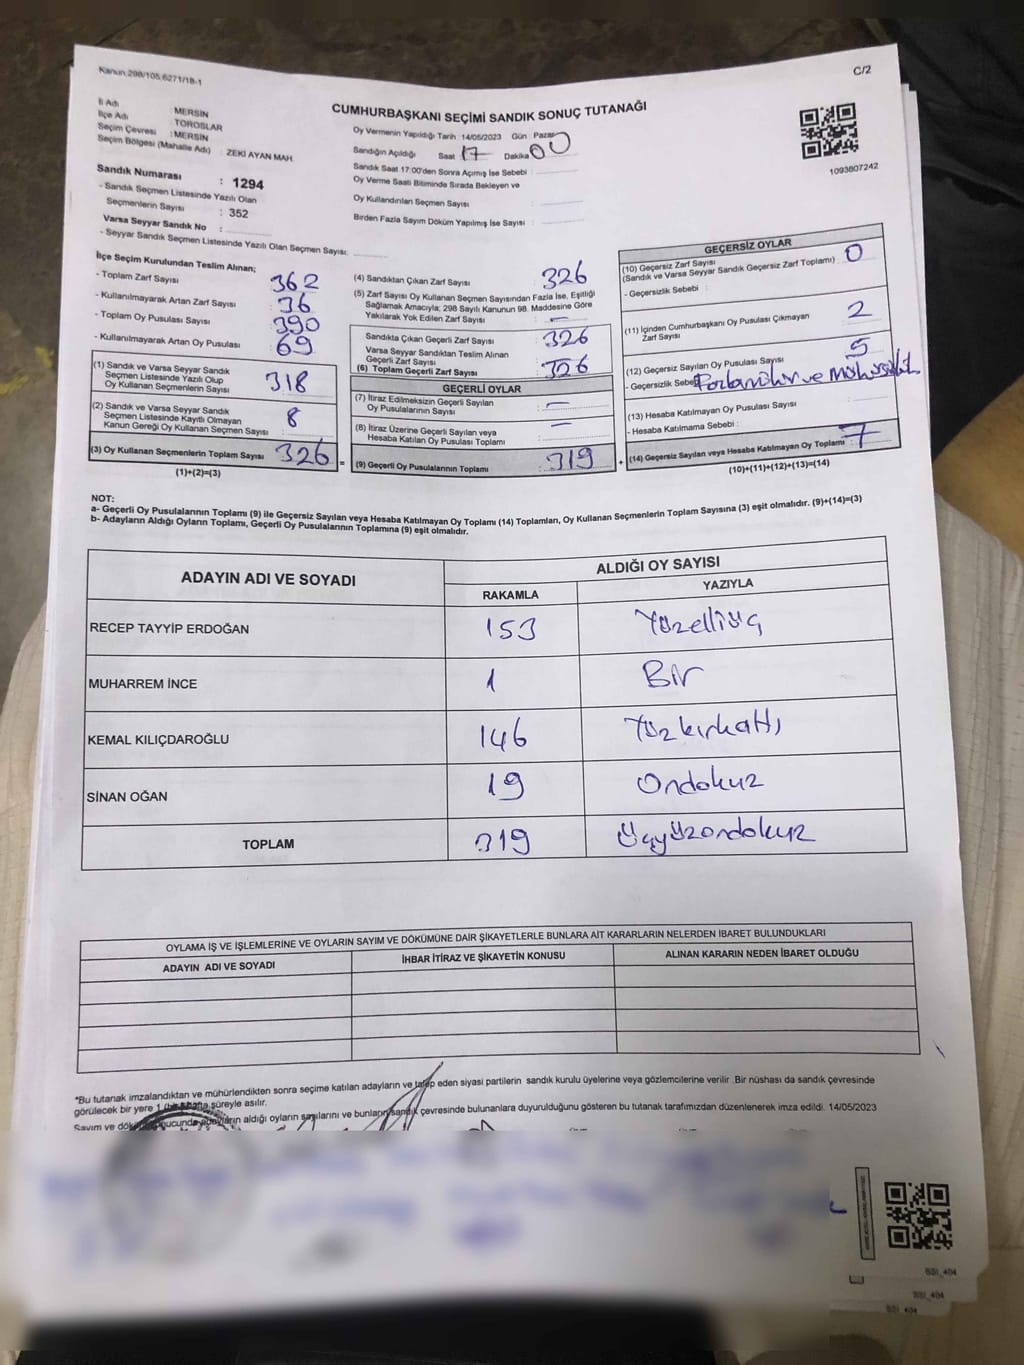 Kanun:298/105,6271/18-1
C/2
CUMHURBAŞKANI SEÇİMİ SANDIK SONUÇ TUTANAĞI
İl Adı : MERSİN
İlçe Adı : TOROSLAR
Seçim Çevresi : MERSİN
Seçim Bölgesi (Mahalle Adı) : ZEKİ AYAN MAH.
Sandık Numarası : 1294
- Sandık Seçmen Listesinde Yazılı Olan
Seçmenlerin Sayısı : 352
Varsa Seyyar Sandık No :
- Seyyar Sandık Seçmen Listesinde Yazılı Olan Seçmen Sayısı:
Oy Vermenin Yapıldığı Tarih :14/05/2023 Gün : Pazar
Sandığın Açıldığı Saat 17 Dakika 00
Sandık Saat 17:00'den Sonra Açımış İse Sebebi :
Oy Verme Saati Bitiminde Sırada Bekleyen ve
Oy Kullandırılan Seçmen Sayısı :
Birden Fazla Sayım Döküm Yapılmış İse Sayısı :
1093807242
İlçe Seçim Kurulundan Teslim Alınan;
- Toplam Zarf Sayısı : 362
- Kullanılmayarak Artan Zarf Sayısı : 36
- Toplam Oy Pusulası Sayısı : 390
- Kullanılmayarak Artan Oy Pusulası : 69
(1) Sandık ve Varsa Seyyar Sandık
Seçmen Listesinde Yazılı Olup
Oy Kullanan Seçmenlerin Sayısı : 318
(2) Sandık ve Varsa Seyyar Sandık
Seçmen Listesinde Kayıtlı Olmayan
Kanun Gereği Oy Kullanan Seçmen Sayısı : 8
(3) Oy Kullanan Seçmenlerin Toplam Sayısı : 326
(1)+(2)=(3)
(4) Sandıktan Çıkan Zarf Sayısı : 326
(5) Zarf Sayısı Oy Kullanan Seçmen Sayısından Fazla İse, Eşitliği
Sağlamak Amacıyla; 298 Sayılı Kanunun 98. Maddesine Göre
Yakılarak Yok Edilen Zarf Sayısı : —
Sandıkta Çıkan Geçerli Zarf Sayısı : 326
Varsa Seyyar Sandıktan Teslim Alınan
Geçerli Zarf Sayısı
(6) Toplam Geçerli Zarf Sayısı : 326
GEÇERLİ OYLAR
(7) İtiraz Edilmeksizin Geçerli Sayılan
Oy Pusulalarının Sayısı : —
(8) İtiraz Üzerine Geçerli Sayılan veya
Hesaba Katılan Oy Pusulası Toplamı : —
= (9) Geçerli Oy Pusulalarının Toplamı : 319 +
GEÇERSİZ OYLAR
(10) Geçersiz Zarf Sayısı
(Sandık ve Varsa Seyyar Sandık Geçersiz Zarf Toplamı) : 0
- Geçersizlik Sebebi :
(11) İçinden Cumhurbaşkanı Oy Pusulası Çıkmayan
Zarf Sayısı : 2
(12) Geçersiz Sayılan Oy Pusulası Sayısı : 5
- Geçersizlik Sebebi
(13) Hesaba Katılmayan Oy Pusulası Sayısı :
- Hesaba Katılmama Sebebi :
(14) Geçersiz Sayılan veya Hesaba Katılmayan Oy Toplamı : 7
(10)+(11)+(12)+(13)=(14)
NOT:
a- Geçerli Oy Pusulalarının Toplamı (9) ile Geçersiz Sayılan veya Hesaba Katılmayan Oy Toplamı (14) Toplamları, Oy Kullanan Seçmenlerin Toplam Sayısına (3) eşit olmalıdır. (9)+(14)=(3)
b- Adayların Aldığı Oyların Toplamı, Geçerli Oy Pusulalarının Toplamına (9) eşit olmalıdır.
ADAYIN ADI VE SOYADI
ALDIĞI OY SAYISI
RAKAMLA YAZIYLA
RECEP TAYYİP ERDOĞAN 153 Yüzelliüç
MUHARREM İNCE 1 Bir
KEMAL KILIÇDAROĞLU 146 Yüzkırkaltı
SİNAN OĞAN 19 Ondokuz
TOPLAM 319 Üçyüzondokuz
OYLAMA İŞ VE İŞLEMLERİNE VE OYLARIN SAYIM VE DÖKÜMÜNE DAİR ŞİKAYETLERLE BUNLARA AİT KARARLARIN NELERDEN İBARET BULUNDUKLARI
ADAYIN ADI VE SOYADI İHBAR İTİRAZ VE ŞİKAYETİN KONUSU ALINAN KARARIN NEDEN İBARET OLDUĞU
*Bu tutanak imzalandıktan ve mühürlendikten sonra seçime katılan adayların ve talep eden siyasi partilerin sandık kurulu üyelerine veya gözlemcilerine verilir .Bir nüshası da sandık çevresinde
görülecek bir yere 1 (bir) hafta süreyle asılır.
Sayım ve döküm sonucunda adayların aldığı oyların sayılarını ve bunların sandık çevresinde bulunanlara duyurulduğunu gösteren bu tutanak tarafımızdan düzenlenerek imza edildi. 14/05/2023
SSI_404
SSI_404
SSI_404